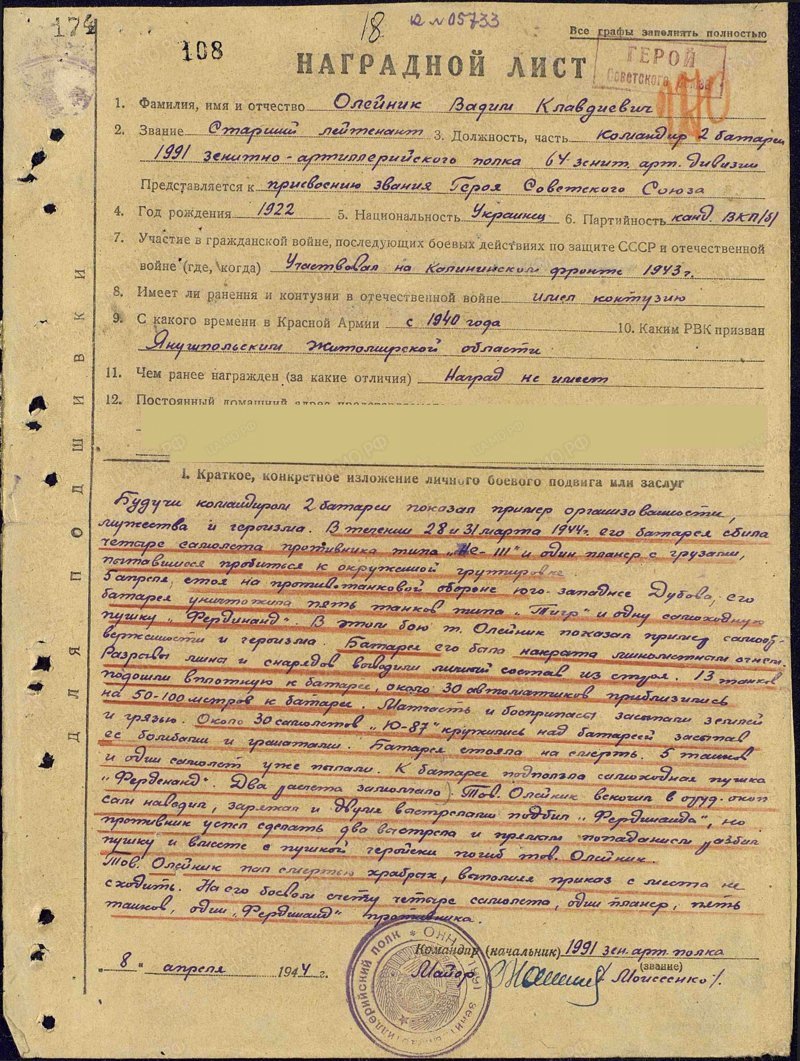 174
108
18
Все графы заполнять полностью
ГЕРОЙ
Советского
НАГРАДНОЙ ЛИСТ
1. Фамилия, имя и отчество Олейник Вадим Клавдиевич
2. Звание Старший лейтенант 3. Должность, часть командир 2 батареи
1991 зенитно-артиллерийского полка 64 зенит. арт. дивизии
Представляется к присвоению звания Героя Советского Союза
4. Год рождения 1922 5. Национальность Украинец 6. Партийность канд. ВКП/б/
7. Участие в гражданской войне, последующих боевых действиях по защите СССР и отечественной
войне (где, когда) Участвовал на Калининском фронте 1943 г.
8. Имеет ли ранения и контузии в отечественной войне имел контузию
9. С какого времени в Красной Армии с 1940 года 10. Каким РВК призван
Янушпольским Житомирской области
11. Чем ранее награжден (за какие отличия) Наград не имеет
12. Постоянный домашний адрес
ДЛЯ ПОДШИВКИ
I. Краткое, конкретное изложение личного боевого подвига или заслуг
Будучи командиром 2 батареи показал пример организованности,
мужества и героизма. В течении 28 и 31 марта 1944 г. его батарея сбила
четыре самолета противника типа „Не-111" и один планер с грузами,
пытавшиеся пробиться к окруженной группировке
5 апреля, стоя на противотанковой обороне юго-западнее Дубова, его
батарея уничтожила пять танков типа „Тигр" и одну самоходную
пушку „Фердинанд". В этом бою т. Олейник показал пример самоот-
верженности и героизма. Батарея его была накрыта минометным огнем.
Разрывы мин и снарядов выводили личный состав из строя. 13 танков
подошли вплотную к батарее, около 30 автоматчиков приблизились
на 50-100 метров к батарее. Матчасть и боеприпасы засыпали землей
и грязью. Около 30 самолетов „Ю-87" кружились над батареей засыпав
ее бомбами и гранатами. Батарея стояла на смерть. 5 танков
и один самолет уже пылали. К батарее подползла самоходная пушка
„Ферденанд". Два расчета замолчало. Тов. Олейник вскочил в оруд. окоп
сам наводил, заряжал и двумя выстрелами подбил „Фердинанда", но
противник успел сделать два выстрела и прямым попаданием разбил
пушку и вместе с пушкой геройски погиб тов. Олейник.
Тов. Олейник пал смертью храбрых, выполняя приказ с места не
сходить. На его боевом счету четыре самолета, один планер, пять
танков, один „Фердинанд" противника.
Командир (начальник) 1991 зен. арт. полка
(звание)
Майор Моисеенко/
„8" апреля 1944 г.